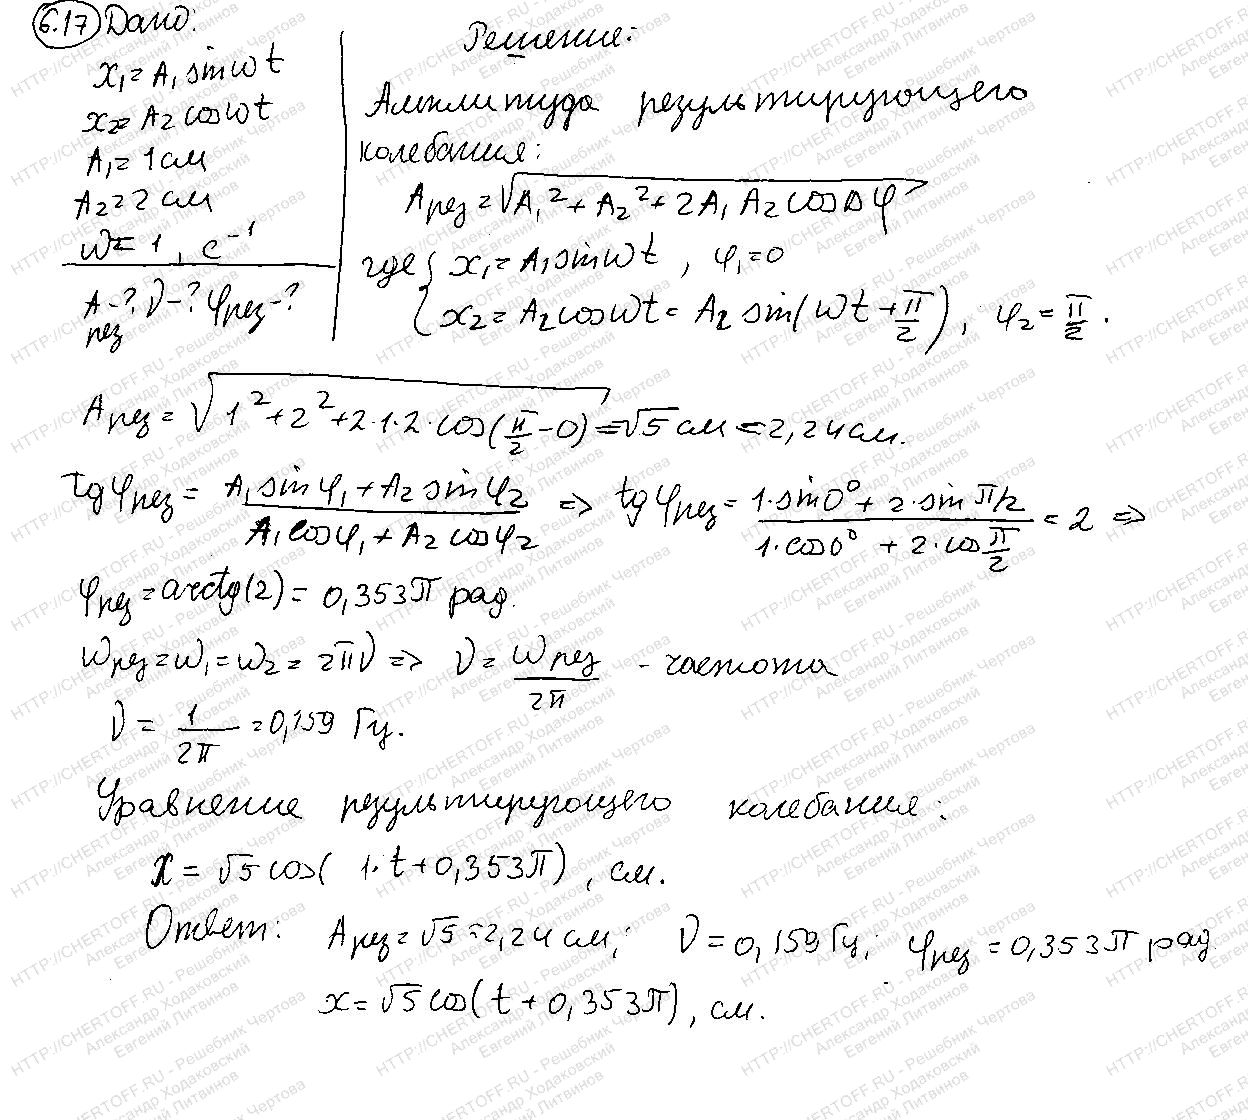 6.17 Дано:
x₁ = A₁ sin ωt
x₂ = A₂ cos ωt
A₁ = 1 см
A₂ = 2 см
ω = 1, с⁻¹
A рез - ? ν - ? φрез - ?
Решение:
Амплитуда результирующего
колебания:
Aрез = √(A₁² + A₂² + 2A₁A₂ cos Δφ)
где { x₁ = A₁ sin ωt, φ₁ = 0
x₂ = A₂ cos ωt = A₂ sin(ωt + π/2), φ₂ = π/2.
Aрез = √(1² + 2² + 2·1·2·cos(π/2 - 0)) = √5 см = 2,24 см.
tg φрез = (A₁ sin φ₁ + A₂ sin φ₂)/(A₁ cos φ₁ + A₂ cos φ₂) => tg φрез = (1·sin 0° + 2·sin π/2)/(1·cos 0° + 2·cos π/2) = 2 =>
φрез = arctg(2) = 0,353π рад.
ωрез = ω₁ = ω₂ = 2πν => ν = ωрез/2π - частота
ν = 1/2π = 0,159 Гц.
Уравнение результирующего колебания:
x = √5 cos( 1·t + 0,353π), см.
Ответ: Aрез = √5 = 2,24 см; ν = 0,159 Гц; φрез = 0,353π рад
x = √5 cos(t + 0,353π), см.
HTTP://CHERTOFF.RU - Решебник Чертова
Александр Ходаковский
Евгений Литвинов